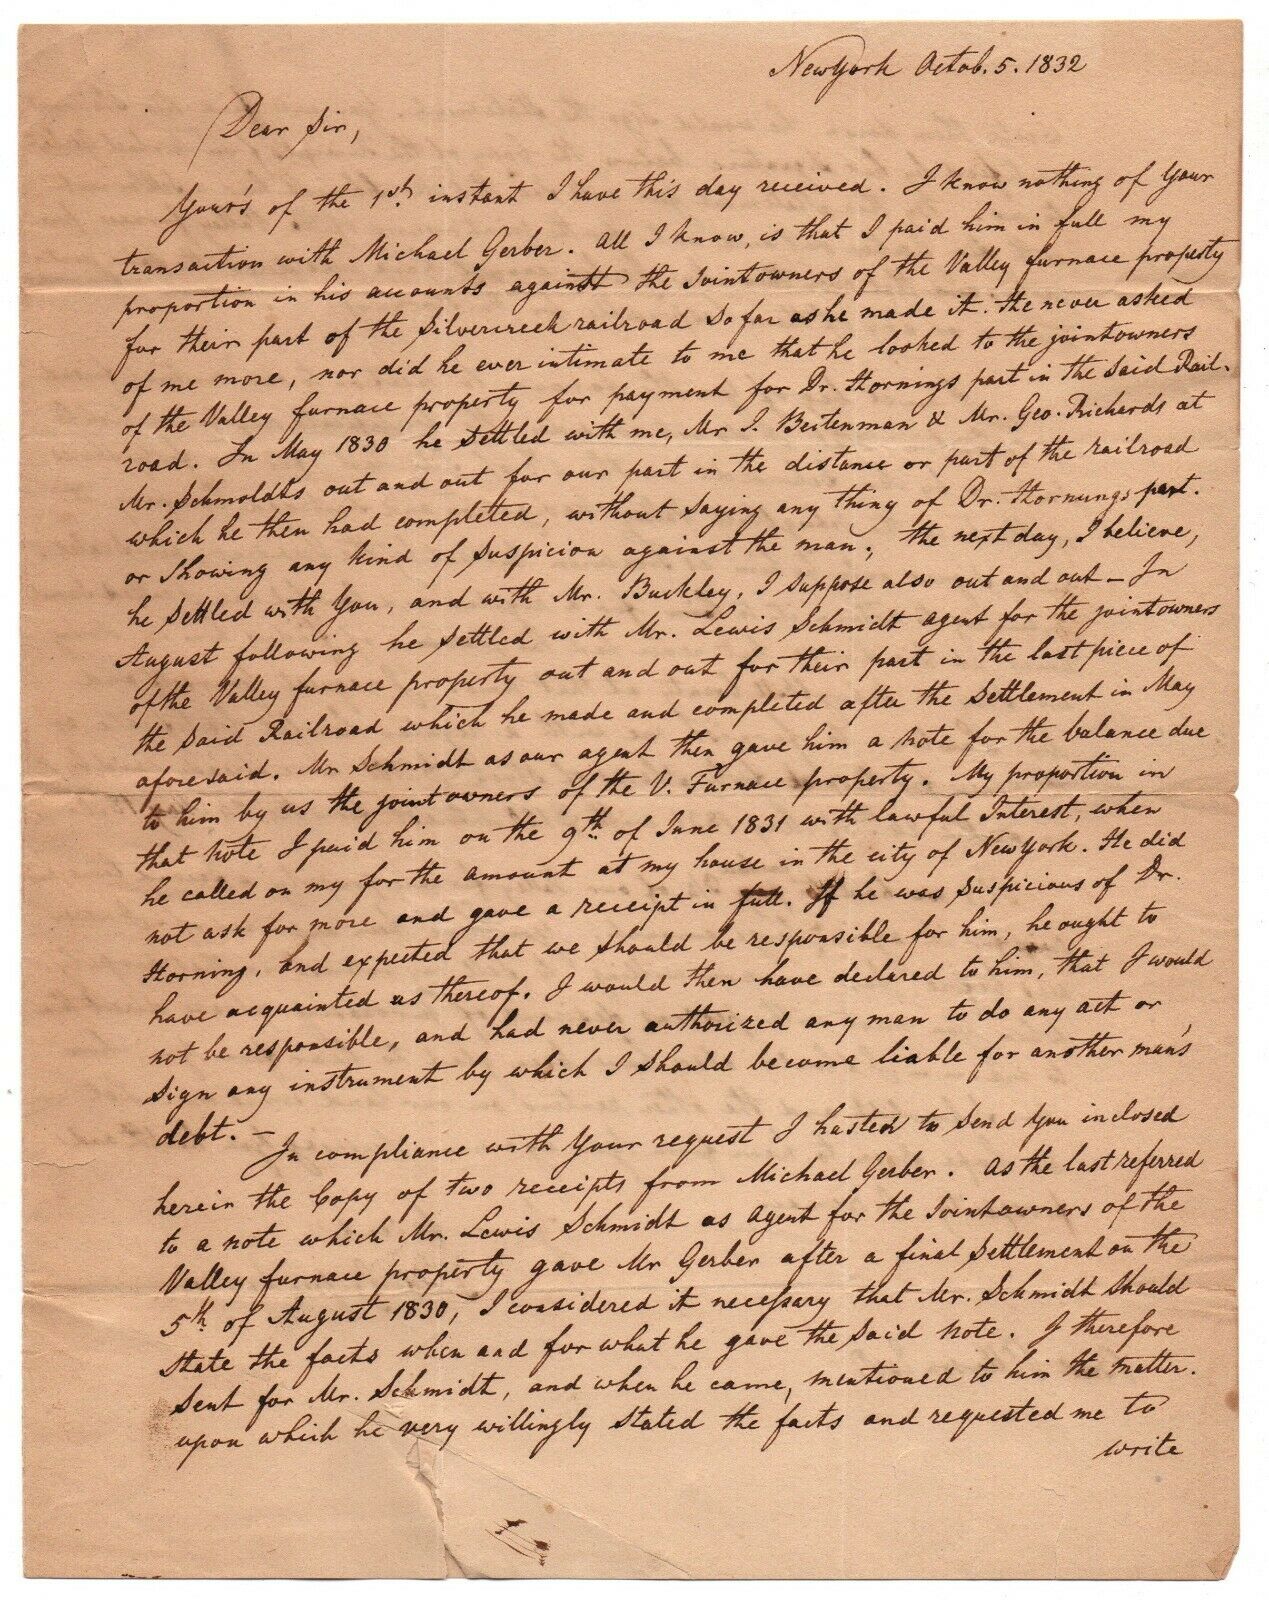 New York Octob. 5. 1832
Dear Sir,
Your's of the 1st. instant I have this day received. I know nothing of Your
transaction with Michael Gerber. All I know, is that I paid him in full my
proportion in his accounts against the Jointowners of the Valley furnace property
for their part of the Silvercreek railroad so far as he made it. He never asked
of me more, nor did he ever intimate to me that he looked to the jointowners
of the Valley furnace property for payment for Dr. Hornings part in the said Rail-
road. In May 1830 he settled with me, Mr J. Beitenman & Mr. Geo. Richards at
Mr. Schmoldts out and out for our part in the distance or part of the railroad
which he then had completed, without saying any thing of Dr. Hornungs part.
or showing any kind of suspicion against the man; the next day, I believe,
he settled with You, and with Mr. Buckley, I suppose also out and out – In
August following he settled with Mr. Lewis Schmidt agent for the jointowners
of the Valley furnace property out and out for their part in the last piece of
the said Railroad which he made and completed after the settlement in May
aforesaid. Mr Schmidt as our agent then gave him a note for the balance due
to him by us the jointowners of the V. Furnace property. My proportion in
that note I paid him on the 9th. of June 1831 with lawful Interest, when
he called on my for the amount at my house in the city of New York. He did
not ask for more and gave a receipt in full. If he was suspicious of Dr.
Horning, and expected that we should be responsible for him, he ought to
have acquainted us thereof. I would then have declared to him, that I would
not be responsible, and had never authorized any man to do any act or
sign any instrument by which I should become liable for another man's
debt. –
In compliance with Your request I hasten to send You inclosed
herein the Copy of two receipts from Michael Gerber. As the last referred
to a note which Mr. Lewis Schmidt as Agent for the Jointowners of the
Valley furnace property gave Mr Gerber after a final settlement on the
5th. of August 1830, I considered it necessary that Mr. Schmidt should
state the facts when and for what he gave the said note. I therefore
sent for Mr. Schmidt, and when he came, mentioned to him the matter.
upon which he very willingly stated the facts and requested me to
write